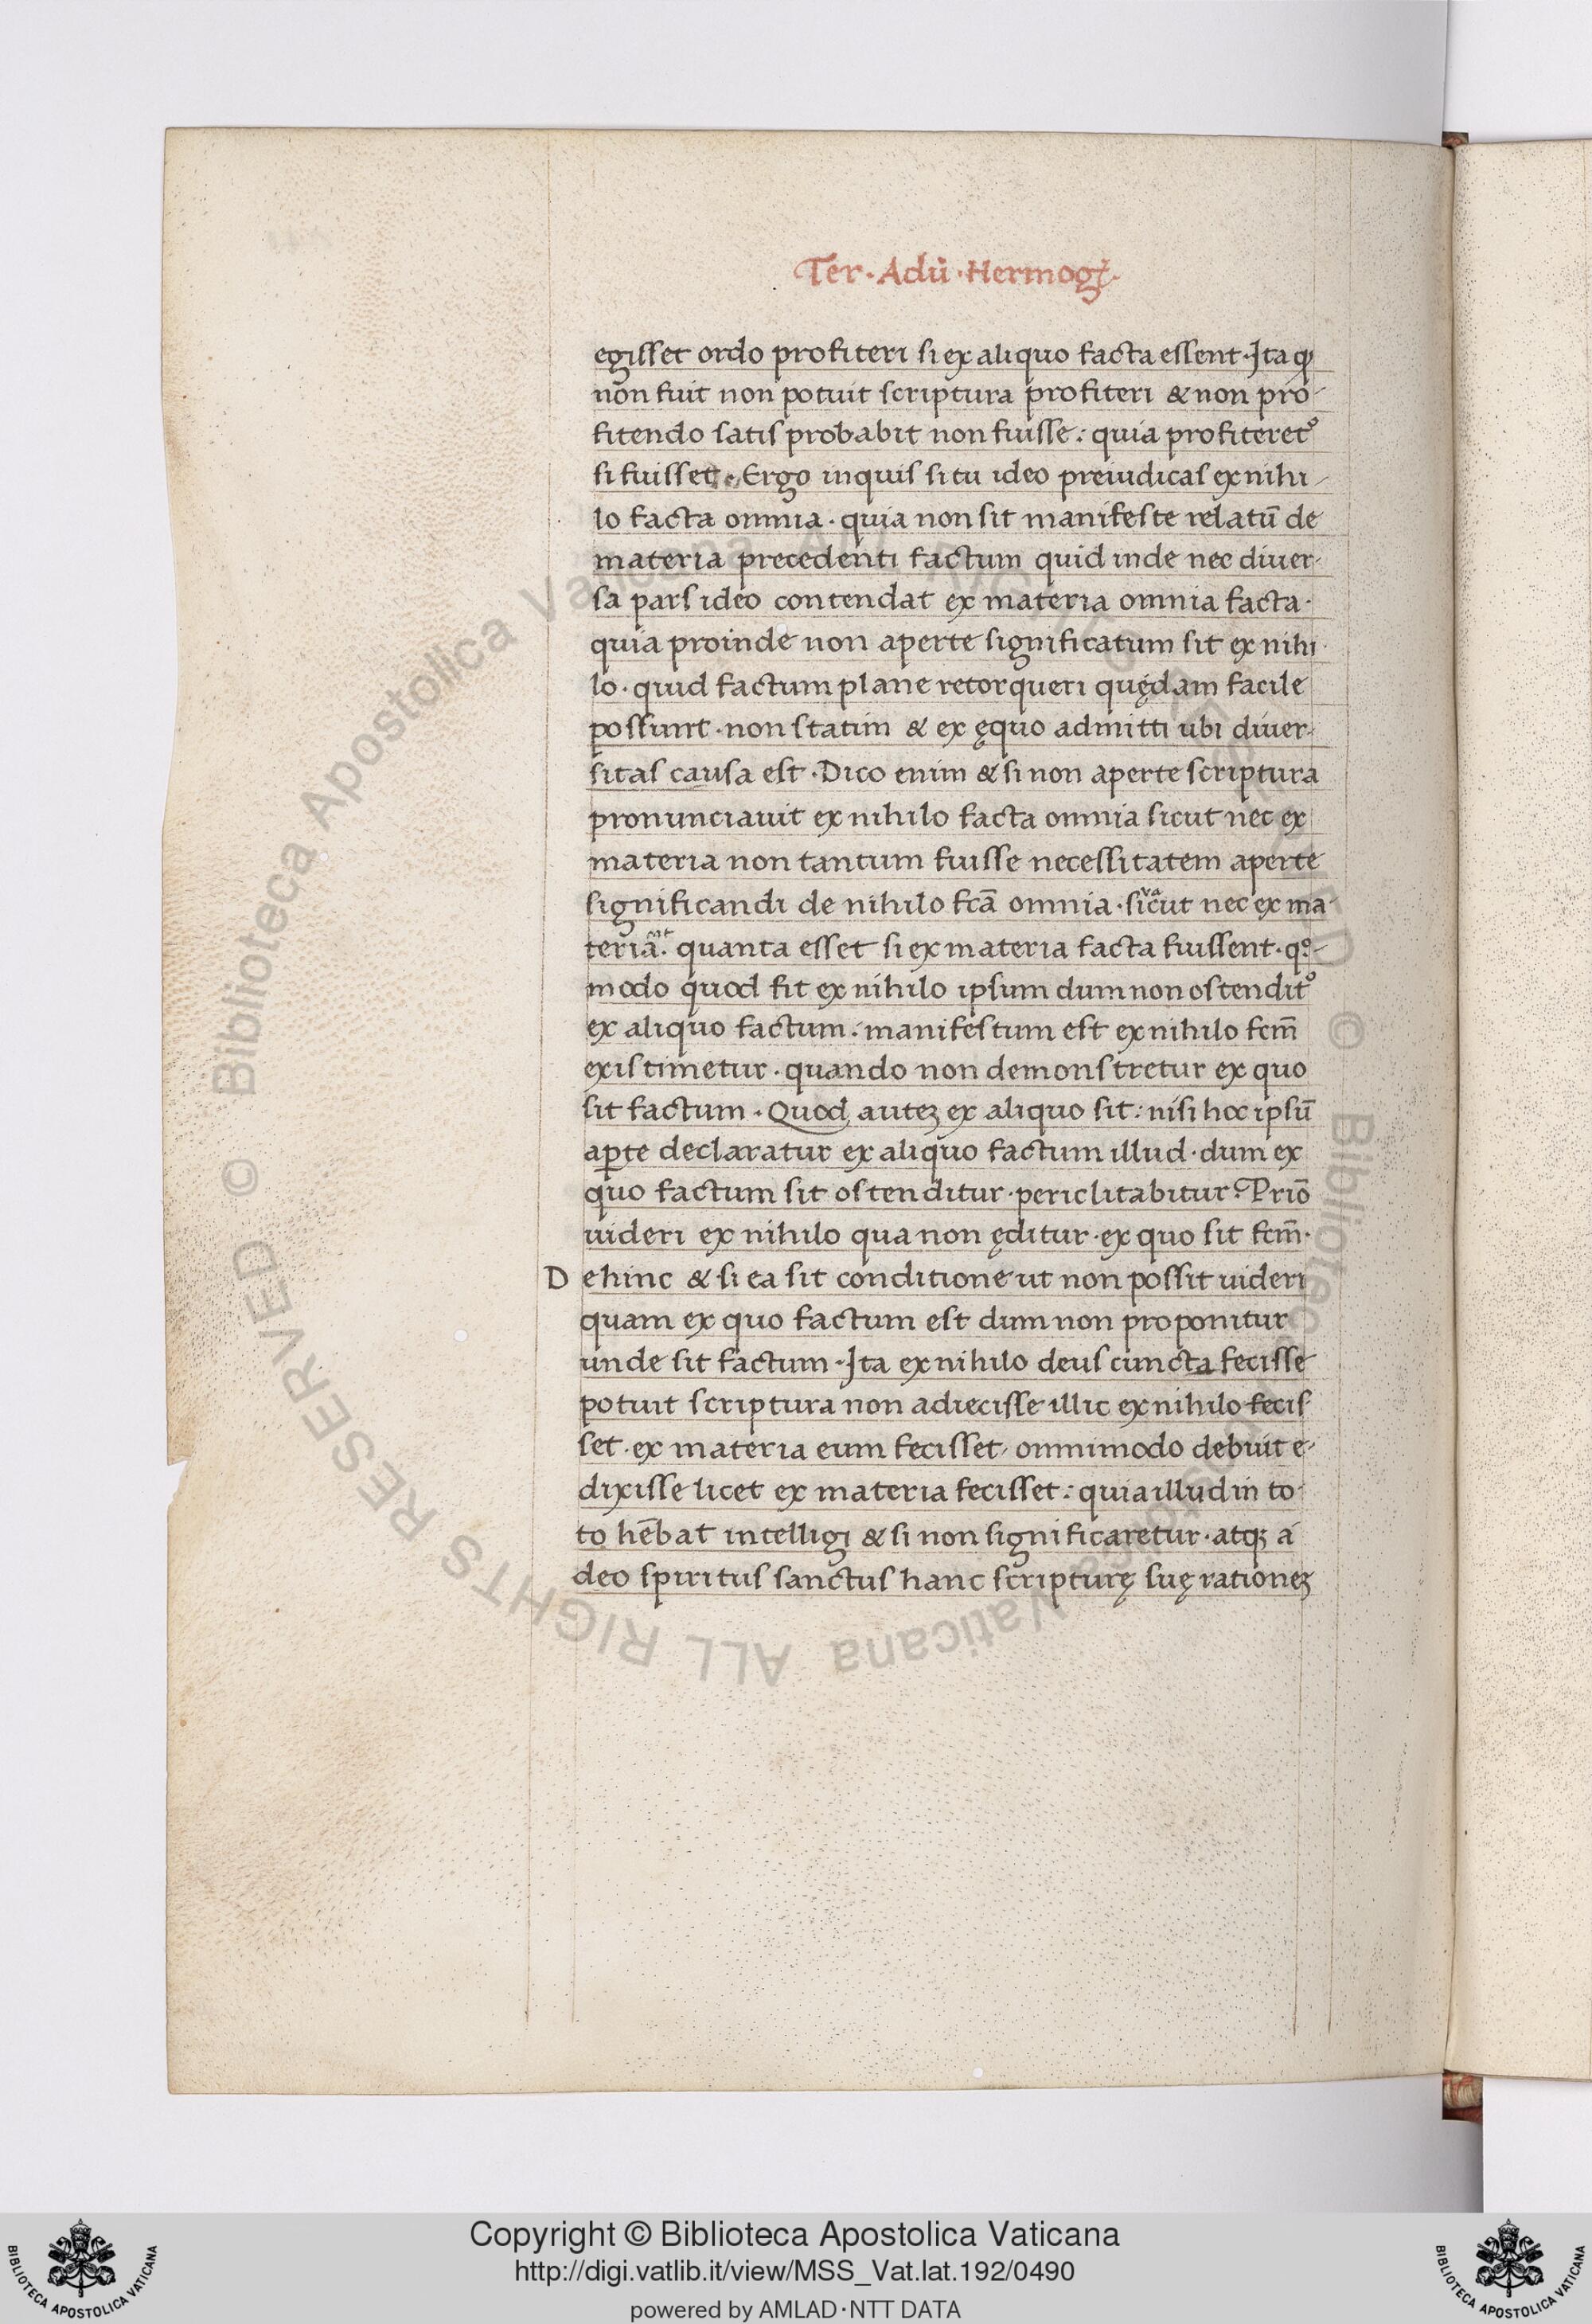 Ter · Adū · Hermog̃ ·
egisset ordo profiteri si ex aliquo facta essent · Ita qꝫ
non fuit non potuit scriptura profiteri & non pro-
fitendo satis probabit non fuisse : quia profiteret᷒
si fuisset · Ergo inquis si tu ideo preiudicas ex nihi-
lo facta omnia · quia non sit manifeste relatū de
materia precedenti factum quid inde nec diuer-
sa pars ideo contendat ex materia omnia facta ·
quia proinde non aperte significatum sit ex nihi-
lo · quid factum plane retorqueri quędam facile
possunt · non statim & ex ęquo admitti ubi diuer-
sitas causa est · Dico enim & si non aperte scriptura
pronunciauit ex nihilo facta omnia sicut nec ex
materia non tantum fuisse necessitatem aperte
significandi de nihilo fcā omnia · sicut nec ex ma-
teria · quanta esset si ex materia facta fuissent · qº-
modo quod fit ex nihilo ipsum dum non ostendit᷒
ex aliquo factum : manifestum est ex nihilo fcm̄
existimetur · quando non demonstretur ex quo
sit factum · Quod auteꝫ ex aliquo sit : nisi hoc ipsū
aꝑte declaratur ex aliquo factum illud · dum ex
quo factum sit ostenditur · periclitabitur · Priō
uideri ex nihilo qua non ęditur · ex quo sit fcm̄ ·
Dehinc & si ea sit conditione ut non possit uideri
quam ex quo factum est dum non proponitur
unde sit factum · Ita ex nihilo deus cuncta fecisse
potuit scriptura non adiecisse illic ex nihilo fecis-
set · ex materia eum fecisset · omnimodo debuit e-
dixisse licet ex materia fecisset : quia illud in to-
to hēbat intelligi & si non significaretur · atqꝫ a
deo spiritus sanctus hanc scripturę suę rationeꝫ
Copyright © Biblioteca Apostolica Vaticana
http://digi.vatlib.it/view/MSS_Vat.lat.192/0490
powered by AMLAD·NTT DATA
BIBLIOTECA APOSTOLICA VATICANA
BIBLIOTECA APOSTOLICA VATICANA
© Biblioteca Apostolica Vaticana ALL RIGHTS RESERVED © Biblioteca Apostolica Vaticana ALL RIGHTS RESERVED